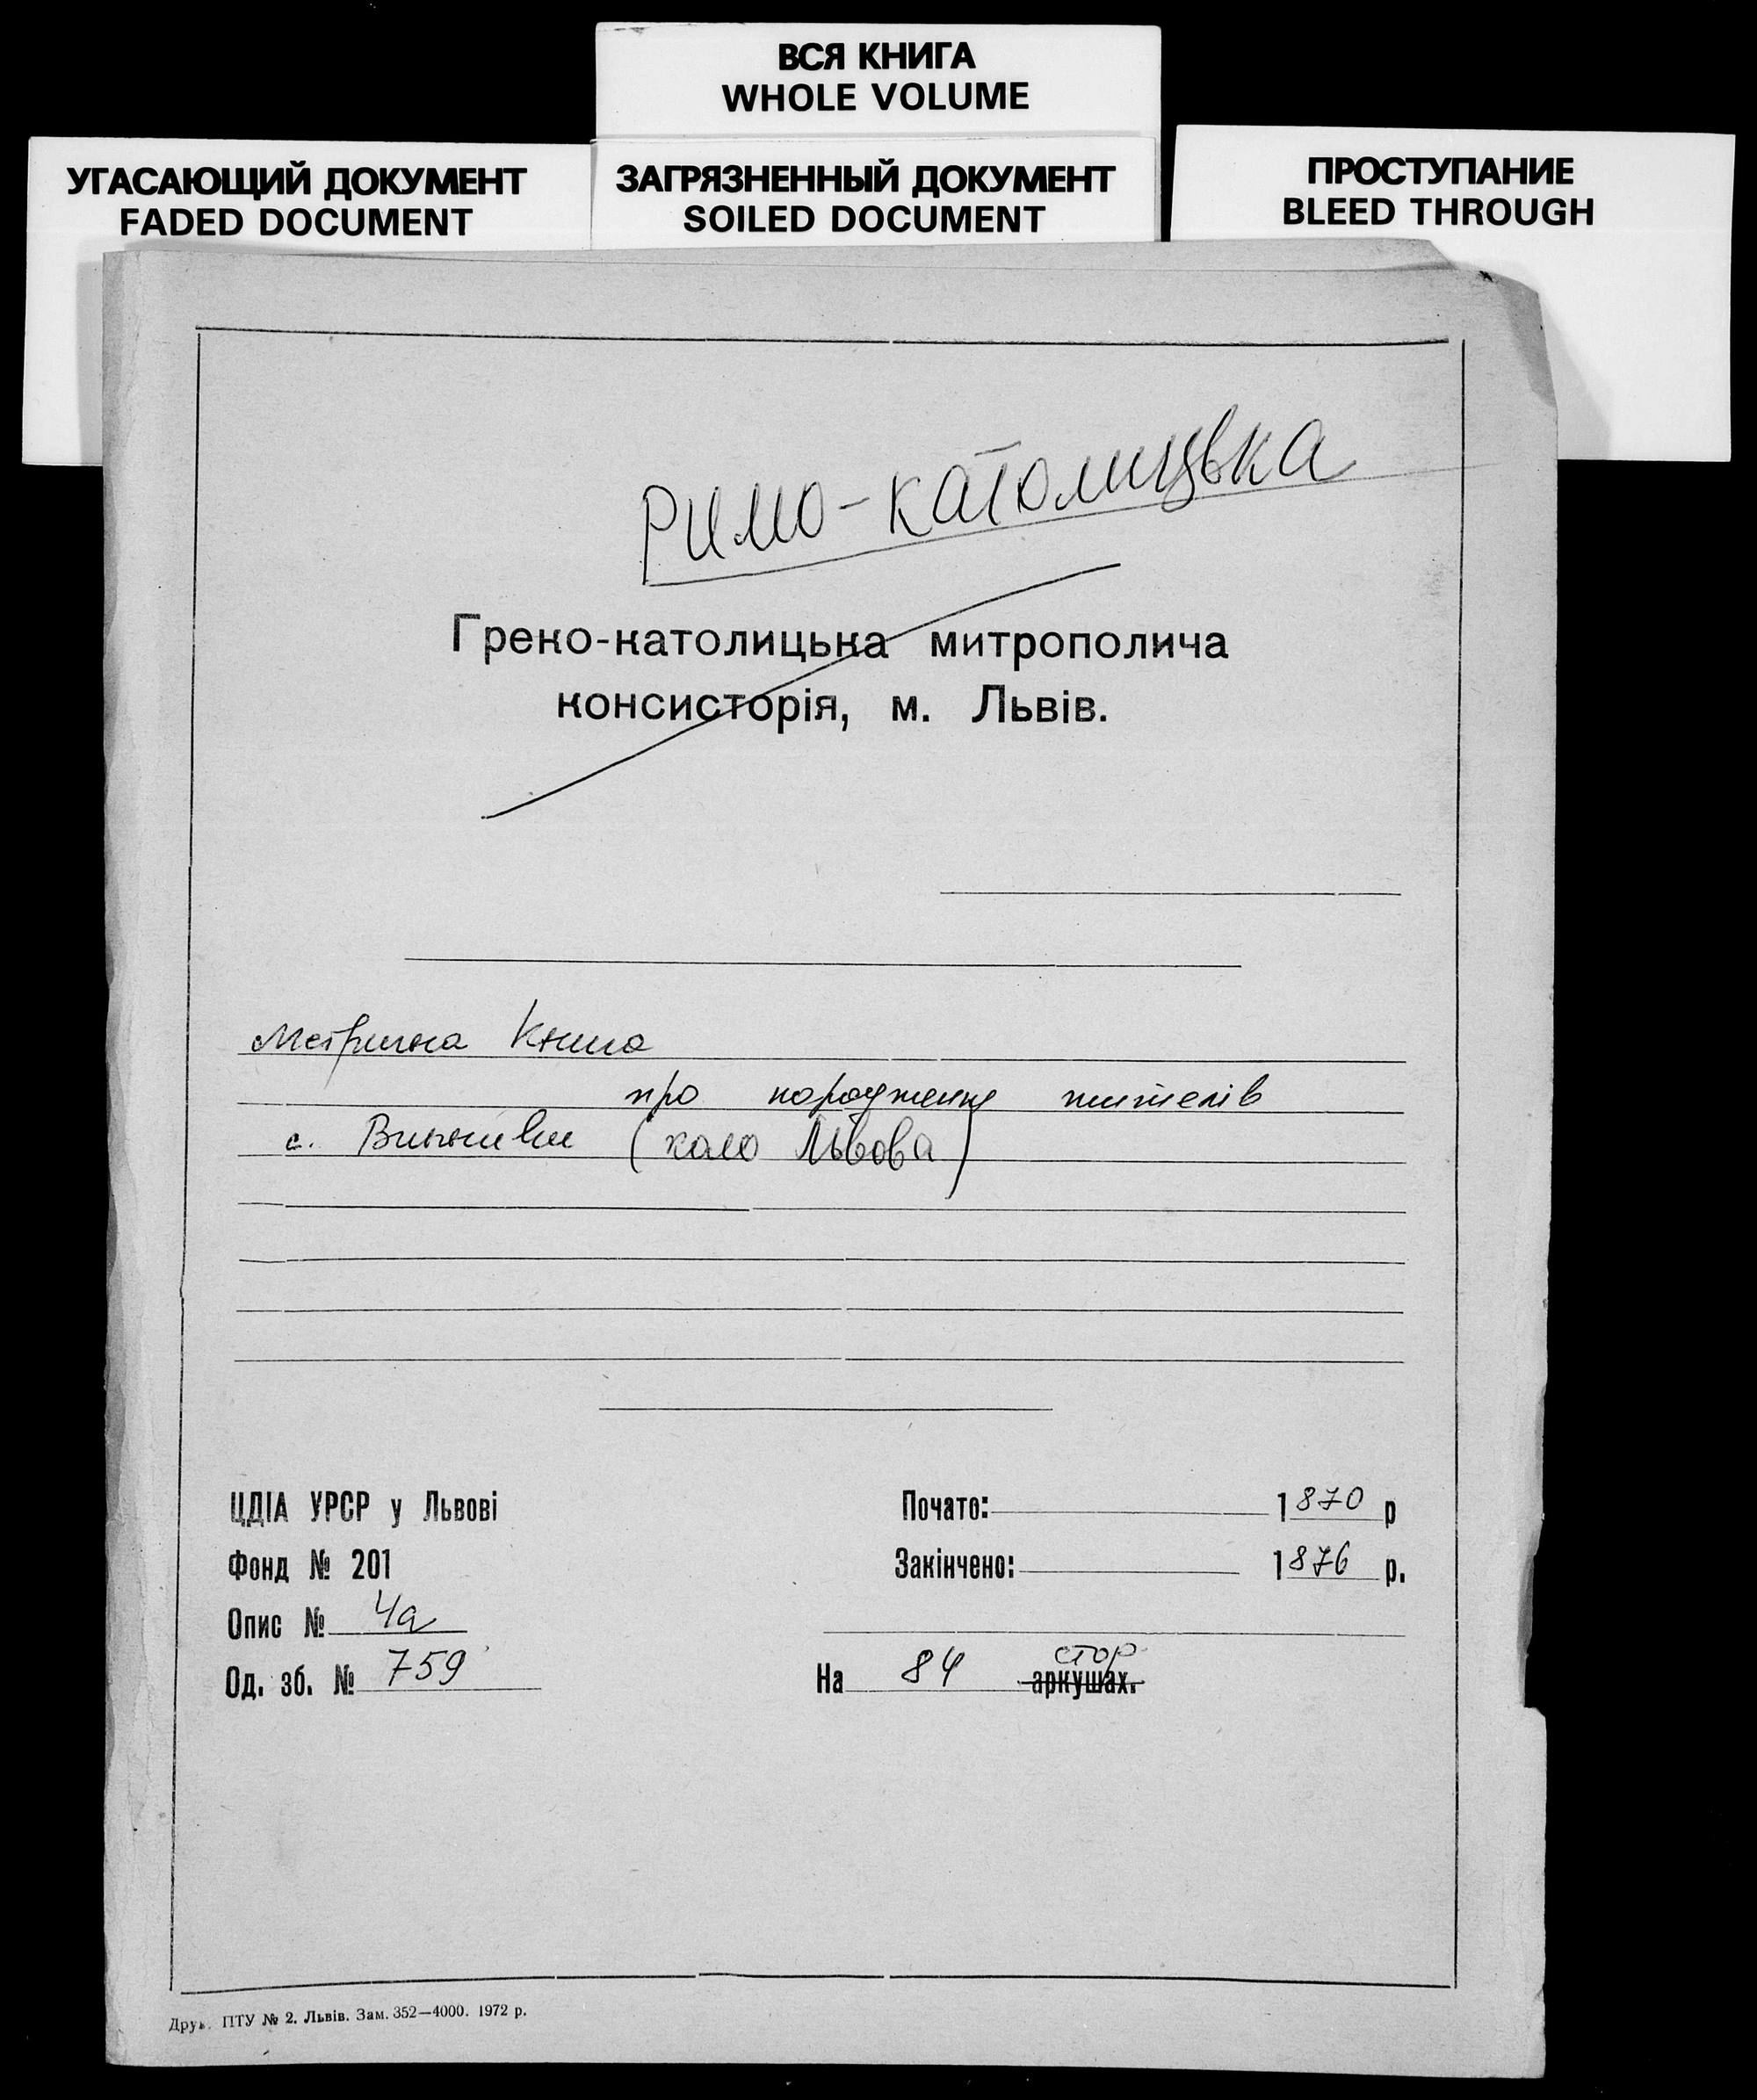 ВСЯ КНИГА
WHOLE VOLUME
УГАСАЮЩИЙ ДОКУМЕНТ
FADED DOCUMENT
ЗАГРЯЗНЕННЫЙ ДОКУМЕНТ
SOILED DOCUMENT
ПРОСТУПАНИЕ
BLEED THROUGH
Римо-католицька
Греко-католицька митрополича
консисторія, м. Львів.
Метрична Книга
про народження жителів
с. Винники (коло Львова)
ЦДІА УРСР у Львові
Фонд № 201
Опис № 4а
Од. зб. № 759
Почато: 1870 р
Закінчено: 1876 р.
На 84 стор аркушах.
Друк. ПТУ № 2. Львів. Зам. 352—4000. 1972 р.